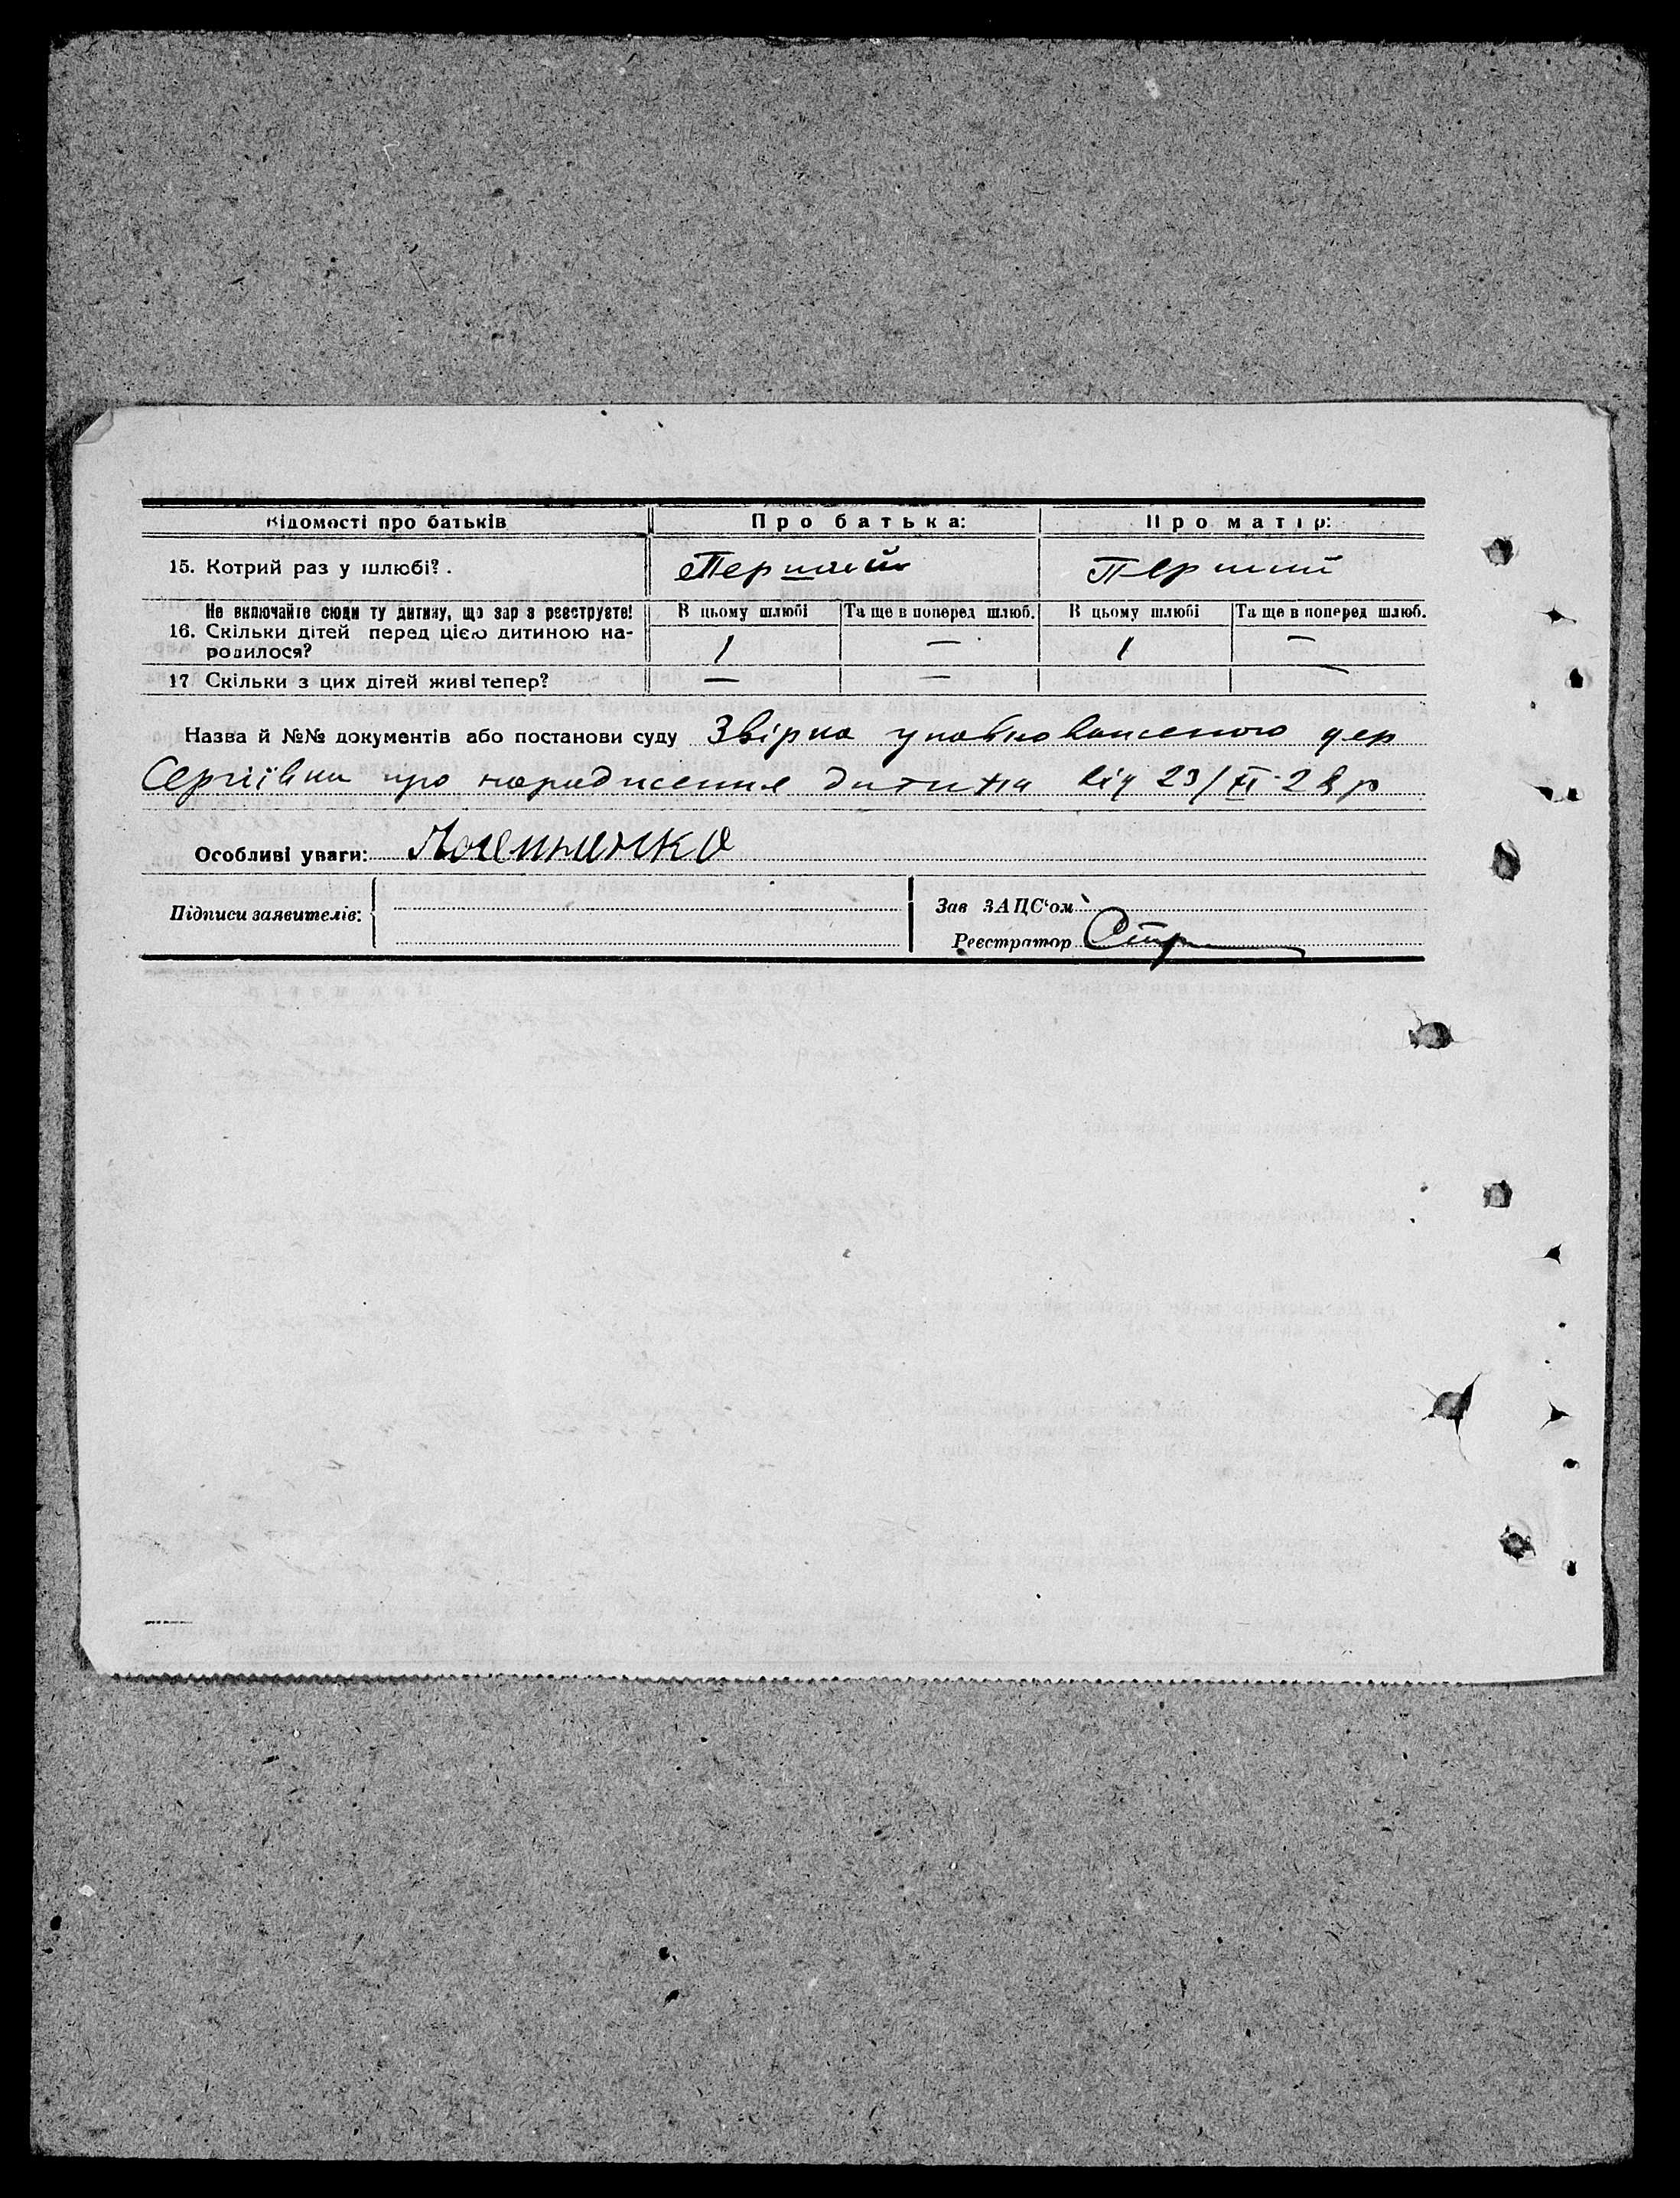 Відомості про батьків Про батька: Про матір:
15. Котрий раз у шлюбі? . Перший Перший
Не включайте сюди ту дитину, що зараз реєструєте! В цьому шлюбі Та ще в поперед шлюб. В цьому шлюбі Та ще в поперед шлюб.
16. Скільки дітей перед цією дитиною на-
родилося? 1 — 1 —
17 Скільки з цих дітей живі тепер? — — —
Назва й №№ документів або постанови суду Звірка уповноваженого дер
Сергіївки про народження дитини від 23/XI-28р
Особливі уваги:
Підписи заявителів:
Зав ЗАЦС'ом
Реєстратор